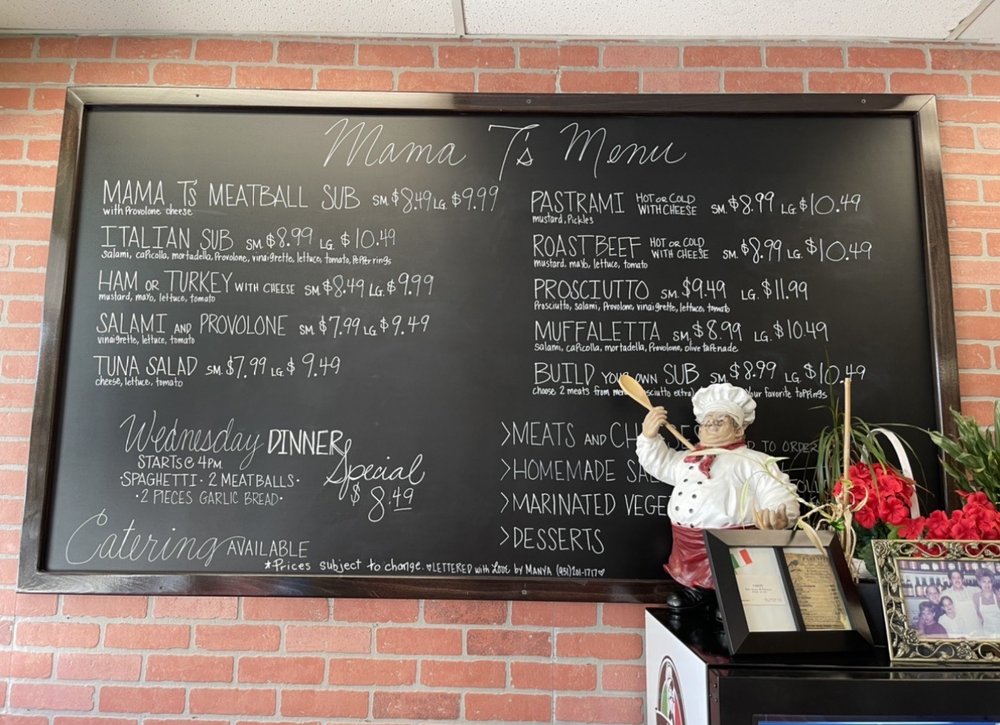 Mama T's Menu
MAMA T'S MEATBALL SUB SM. $8.49 LG. $9.99
with Provolone cheese
ITALIAN SUB SM. $8.99 LG. $10.49
salami, capicolla, mortadella, Provolone, vinaigrette, lettuce, tomato, Pepper rings
HAM OR TURKEY WITH CHEESE SM. $8.49 LG. $9.99
mustard, mayo, lettuce, tomato
SALAMI AND PROVOLONE SM. $7.99 LG. $9.49
vinaigrette, lettuce, tomato
TUNA SALAD SM. $7.99 LG. $9.49
cheese, lettuce, tomato
Wednesday DINNER Special
STARTS @ 4PM
·SPAGHETTI · 2 MEATBALLS·
· 2 PIECES GARLIC BREAD·
$8.49
Catering AVAILABLE
PASTRAMI HOT OR COLD WITH CHEESE SM. $8.99 LG. $10.49
mustard, Pickles
ROAST BEEF HOT OR COLD WITH CHEESE SM. $8.99 LG. $10.49
mustard, mayo, lettuce, tomato
PROSCIUTTO SM. $9.49 LG. $11.99
Prosciutto, salami, Provolone, vinaigrette, lettuce, tomato
MUFFALETTA SM. $8.99 LG. $10.49
salami, capicolla, mortadella, Provolone, olive tapenade
BUILD YOUR OWN SUB SM. $8.99 LG. $10.49
choose 2 meats from extra) your favorite toppings
>MEATS AND TO ORDER
>HOMEMADE
>MARINATED
>DESSERTS
*Prices subject to change. ♥LETTERED with Love by MANYA (951)201-1717♥